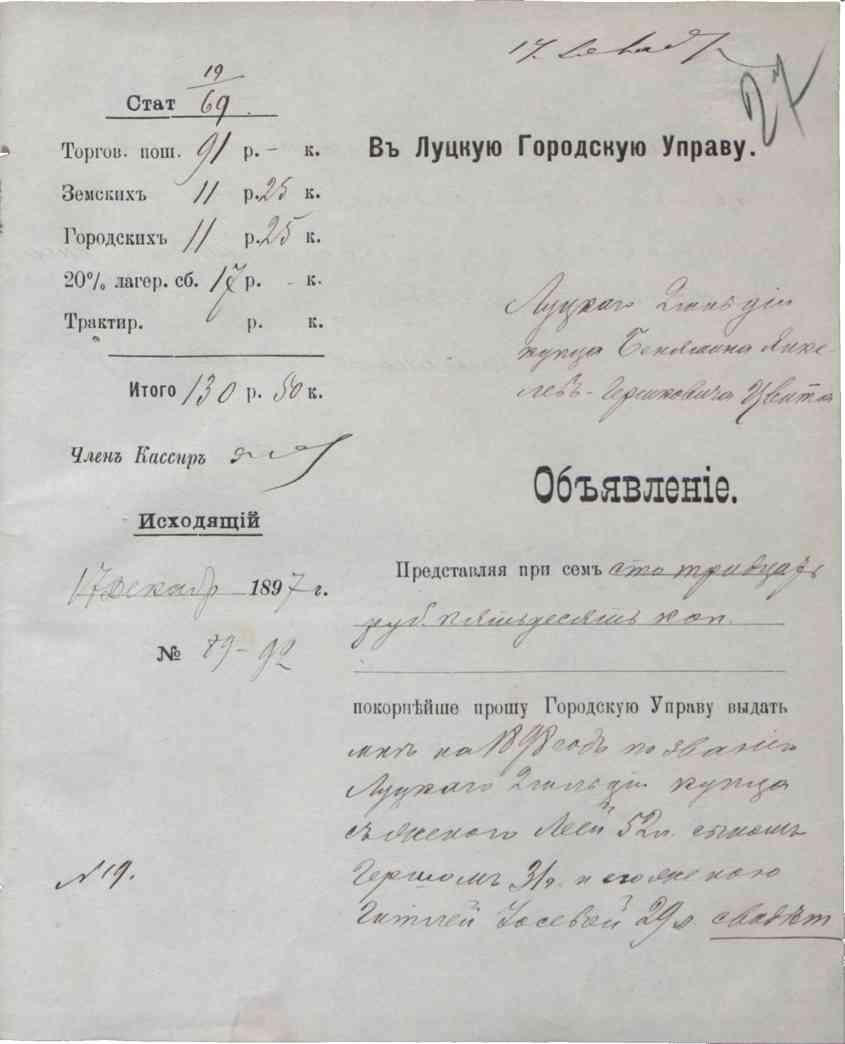 17 Декабр
27
19
Стат 69.
Торгов. пош. 91 р. - к.
Земскихъ 11 р. 25 к.
Городскихъ 11 р. 25 к.
20% лагер. сб. 17 р. - к.
Трактир. р. к.
Итого 130 р. 50 к.
Членъ Кассиръ
Исходящій
17 Декабр 1897 г.
№ 89-92
N 19.
Въ Луцкую Городскую Управу.
Луцкаго 2 гильдіи
купца Бенямина Янке-
левъ-Гершковича Цвита
Объявленіе.
Представляя при семъ сто тридцать
руб. пятьдесятъ коп.
покорнѣйше прошу Городскую Управу выдать
мнѣ на 1898 годъ по званію
Луцкаго 2 гильдіи купца
съ женою Леей 52 л. сыномъ
Гершомъ 31 л. и его женою
Гитлей Іосевой 29 л. свидѣт